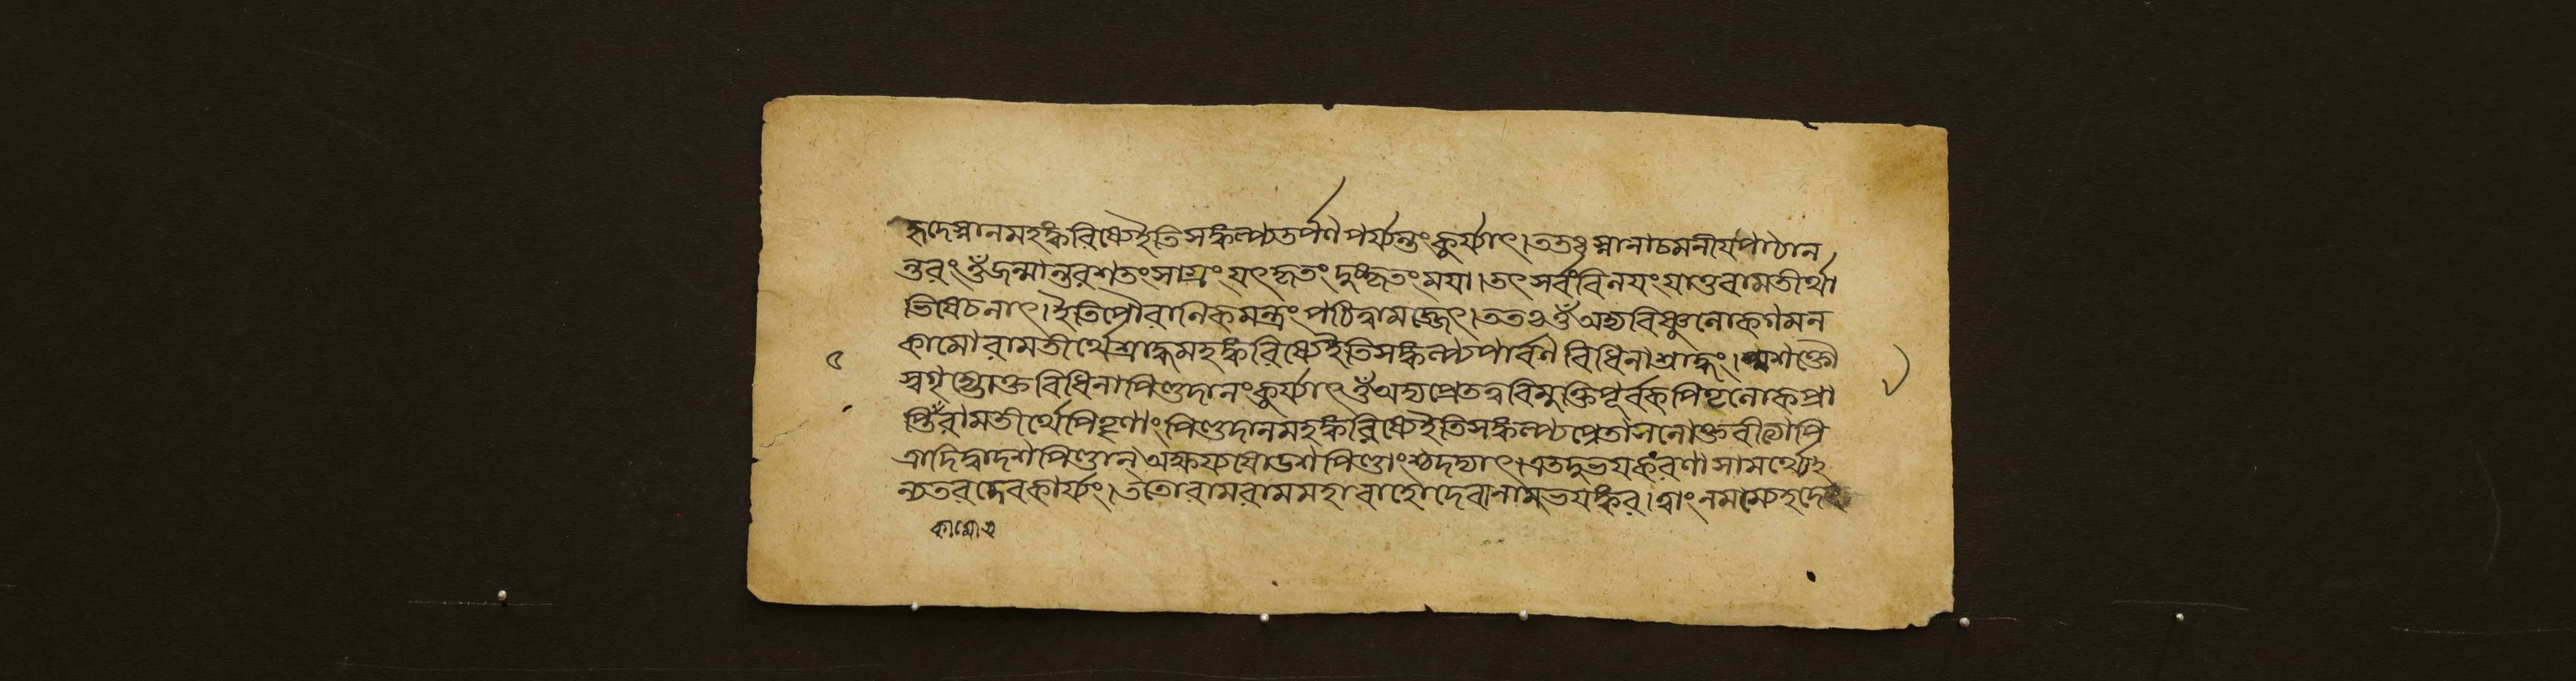 হ্রদেস্নানমহঙ্করিষ্যেইতিসঙ্কল্প্যতর্পণপর্য্যন্তংকুর্য্যাৎ।ততঃস্নানাচমনীযপাঠান
ন্তরংওঁজন্মান্তরশতংসাগ্রংযৎকৃতংদুষ্কৃতংময়া।তৎসর্বংবিলযংযাতুরামতীর্থা
ভিষেচনাৎ।ইতিপৌরানিকমন্ত্রংপঠিত্বামজ্জেৎ।ততঃওঁঅদ্যবিষ্ণুলোকগমন
কামোরামতীর্থেশ্রাদ্ধমহঙ্করিষ্যেইতিসঙ্কল্প্যপার্বণবিধিনাশ্রাদ্ধং।অশক্তৌ
স্বগৃহ্যোক্তবিধিনাপিণ্ডদানংকুর্য্যাৎওঁঅদ্যপ্রেতত্ববিমুক্তিপূর্বকপিতৃলোকপ্রা
প্তিঁরামতীর্থেপিতৄণাংপিণ্ডদানমহঙ্করিষ্যেইতিসঙ্কল্প্য
ত্রাদিদ্বাদশপিণ্ডান্অক্ষয্যষোডশপিণ্ডাংশ্চদদ্যাৎ।এতদুভযকরণাসামর্থ্যেই
ন্যতরদেবকার্য্যং।ততোরামরামমহাবাহোদেবানামভযঙ্কর।ত্বাংনমস্যেহৃদে